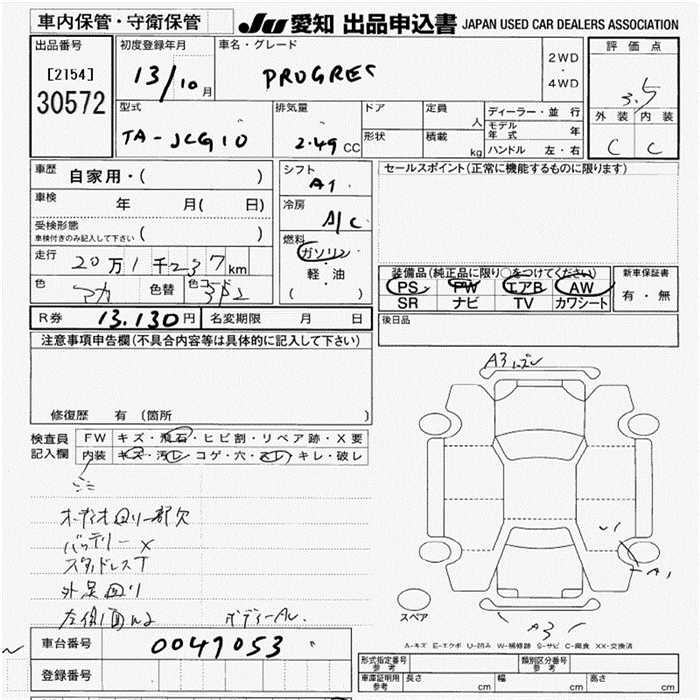 車内保管・守衛保管 JU 愛知 出品申込書 JAPAN USED CAR DEALERS ASSOCIATION
出品番号
[2154]
30572
初度登録年月
13/10月
車名・グレード
PROGRES
2WD
・
4WD
評価点
3.5
外装 内装
C C
型式
TA-JCG10
排気量
2.49CC
ドア
形状
定員 人
積載 kg
ディーラー・並行
モデル年式 年
ハンドル 左・右
車歴 自家用・( )
車検 年 月( 日)
受検形態
車検付きのみ記入して下さい ( )
走行 20万1千237km
色 色替 色コード
シフト
A1
冷房
A/C
燃料
ガソリン
・
軽・油
( )
セールスポイント(正常に機能するものに限ります)
装備品(純正品に限り○をつけてください)
PS PW エアB AW
SR ナビ TV カワシート
新車保証書
有・無
R券 13.130円 名変期限 月 日
後日品
注意事項申告欄(不具合内容等は具体的に記入して下さい)
修復歴 有 (箇所 )
検査員
記入欄
FW キズ・飛石・ヒビ割・リペア跡・X要
内装 キズ・汚レ・コゲ・穴・スレ・キレ・破レ
バッテリーX
スタッドレスT
A3
A1
A3
スペア
A-キズ E-エクボ U-凹み W-補修跡 S-サビ C-腐食 XX-交換済
車台番号 0047053
登録番号
形式指定番号
参考
類別区分番号
参考
車庫証明用
参考
長さ cm 幅 cm 高さ cm